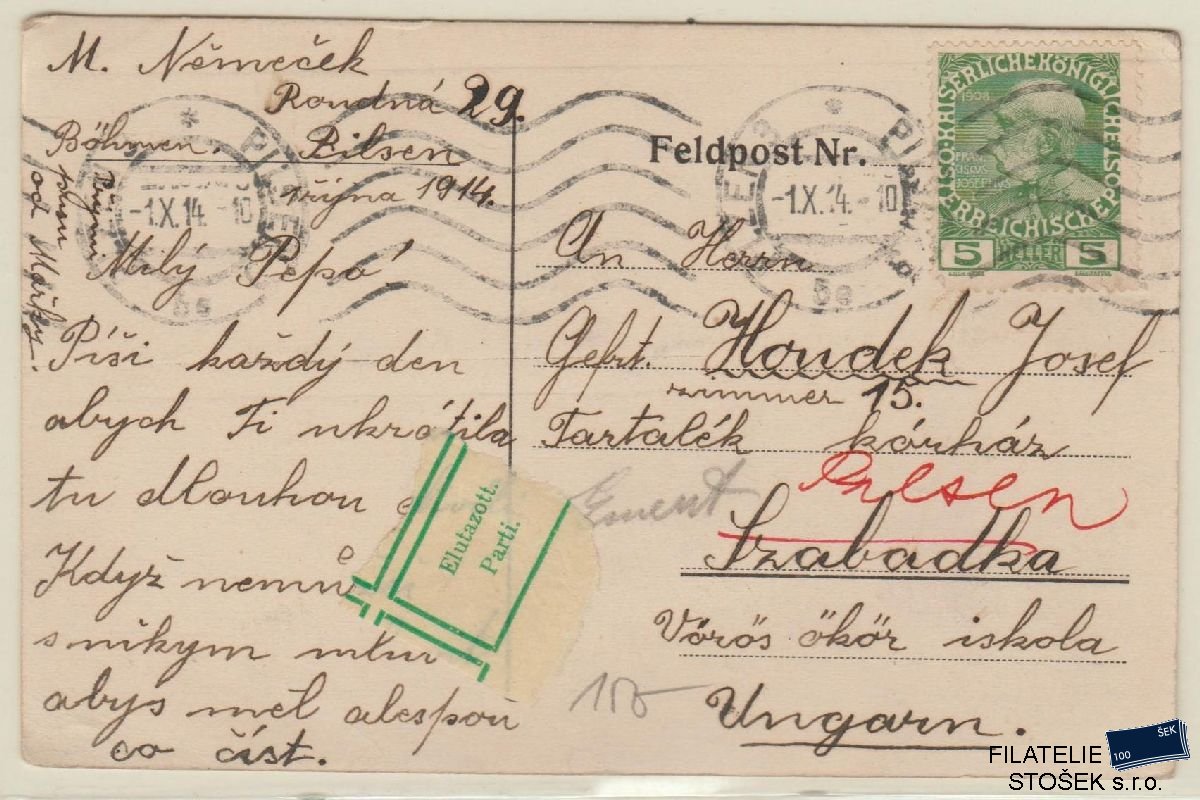 M. Němeček
Roudná 29.
Böhmen. Pilsen
října 1914.
Milý Pepo!
Píši každý den
abych Ti ukrátila
tu dlouhou
Když nemů
s nikym mlu
abys měl alespoň
co číst.
od Mařky.
PILSEN
-1.X.14.-10
5e
Elutazott.
Parti.
Feldpost Nr.
PILSEN
-1.X.14.-10
5e
KAISERLICHE KÖNIGLICHE
ÖSTERREICHISCHE POST
1908
5 HELLER 5
An Herrn
Gefrt. Houdek Josef
zimmer 15.
Tartalék kórház
Pilsen
Szabadka
Vörös ökör iskola
Ungarn.
FILATELIE
STOŠEK s.r.o.
100
ŠEK